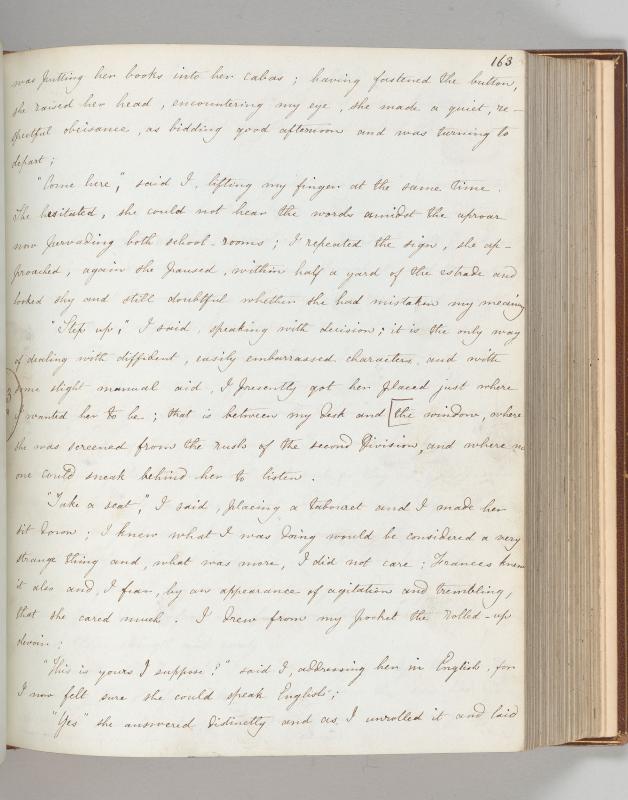 163
was putting her books into her cabas ; having fastened the button,
she raised her head , encountering my eye , she made a quiet, re-
spectful obeisance , as bidding good afternoon and was turning to
depart ;
"Come here", said I , lifting my finger at the same time .
She hesitated , she could not hear the words amidst the uproar
now pervading both school-rooms ; I repeated the sign , she ap-
proached , again she paused , within half a yard of the estrade and
looked shy and still doubtful whether she had mistaken my meaning
"Step up", I said , speaking with decision ; it is the only way
of dealing with diffident , easily embarrassed characters and with
some slight manual aid , I presently got her placed just where
I wanted her to be ; that is between my desk and [the window, where
she was screened from the rush of the second Division , and where no
one could sneak behind her to listen .
"Take a seat", I said , placing a tabouret and I made her
sit down ; I knew what I was doing would be considered a very
strange thing and , what was more , I did not care : Frances knew
it also and , I fear , by an appearance of agitation and trembling ,
that she cared much . I drew from my pocket the rolled-up
devoir :
"This is yours I suppose ?" said I , addressing her in English , for
I now felt sure she could speak English ;
"Yes" she answered distinctly and as I unrolled it and laid